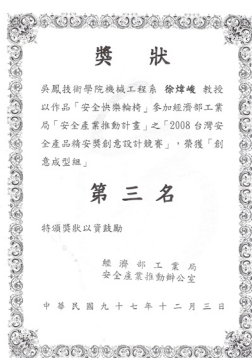 獎狀
吳鳳技術學院機械工程系 徐煒峻 教授
以作品「安全快樂輪椅」參加經濟部工業
局「安全產業推動計畫」之「2008台灣安
全產品精安獎創意設計競賽」,榮獲「創
意成型組」
第三名
特頒獎狀以資鼓勵
經濟部工業局
安全產業推動辦公室
中華民國九十七年十二月三日